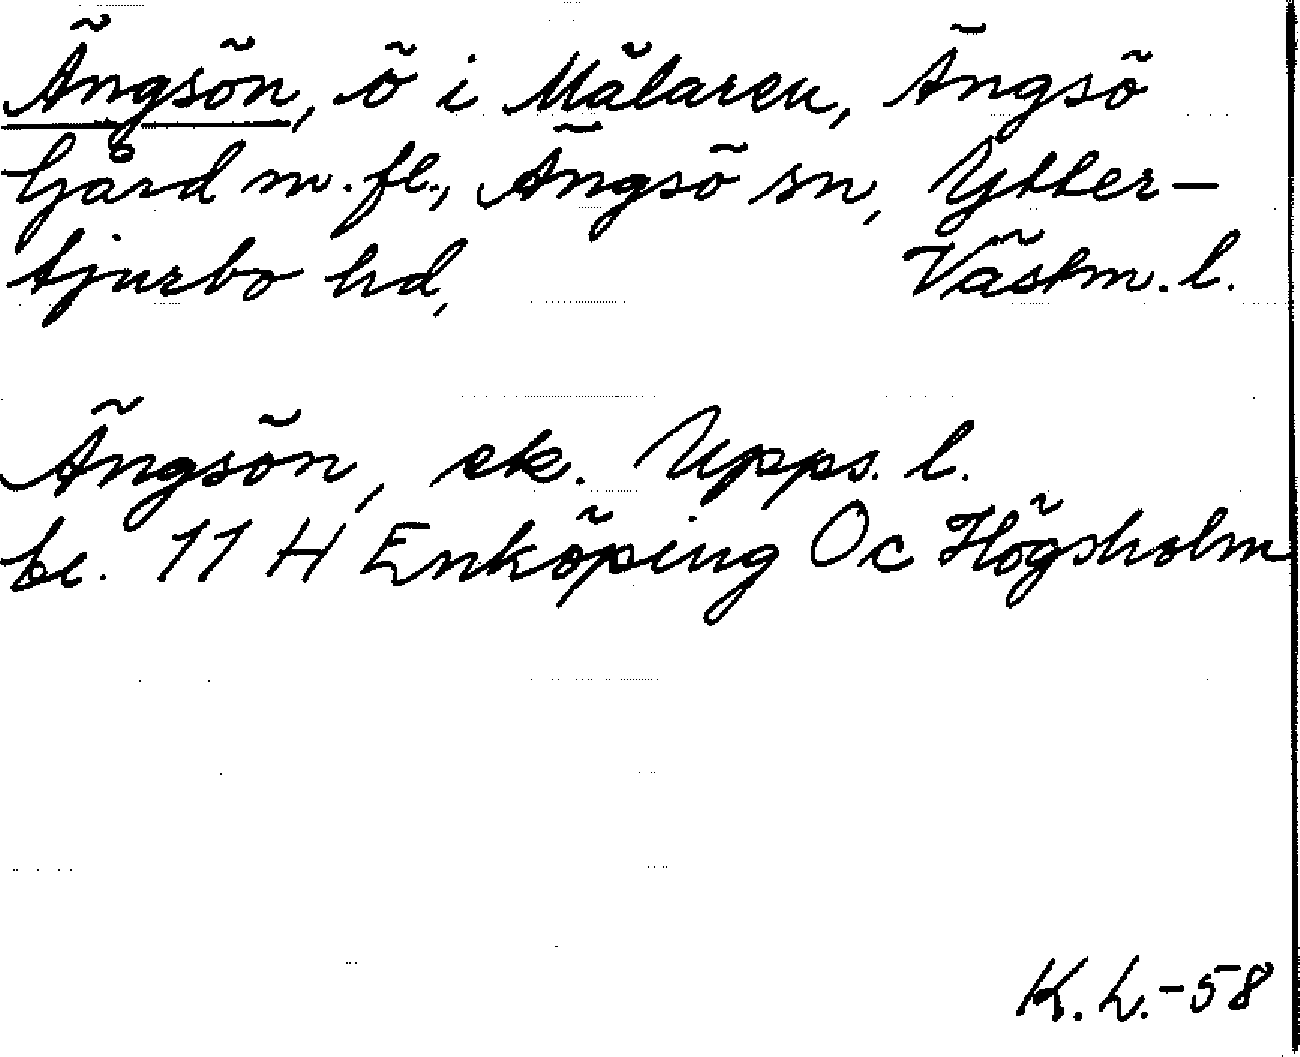 Ängsön, ö i Mälaren, Ängsö
Gård m.fl., Ängsö sn, Ytter-
tjurbo hd, Västm. l.
Ängsön, ek. Upps. l.
be. 11 H Enköping Oc Högsholm
K. L.-58